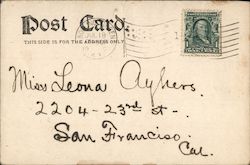 Post Card.
THIS SIDE IS FOR THE ADDRESS ONLY
Miss Leona Ayhers
2204-23rd st-
San Francisco.
Cal.